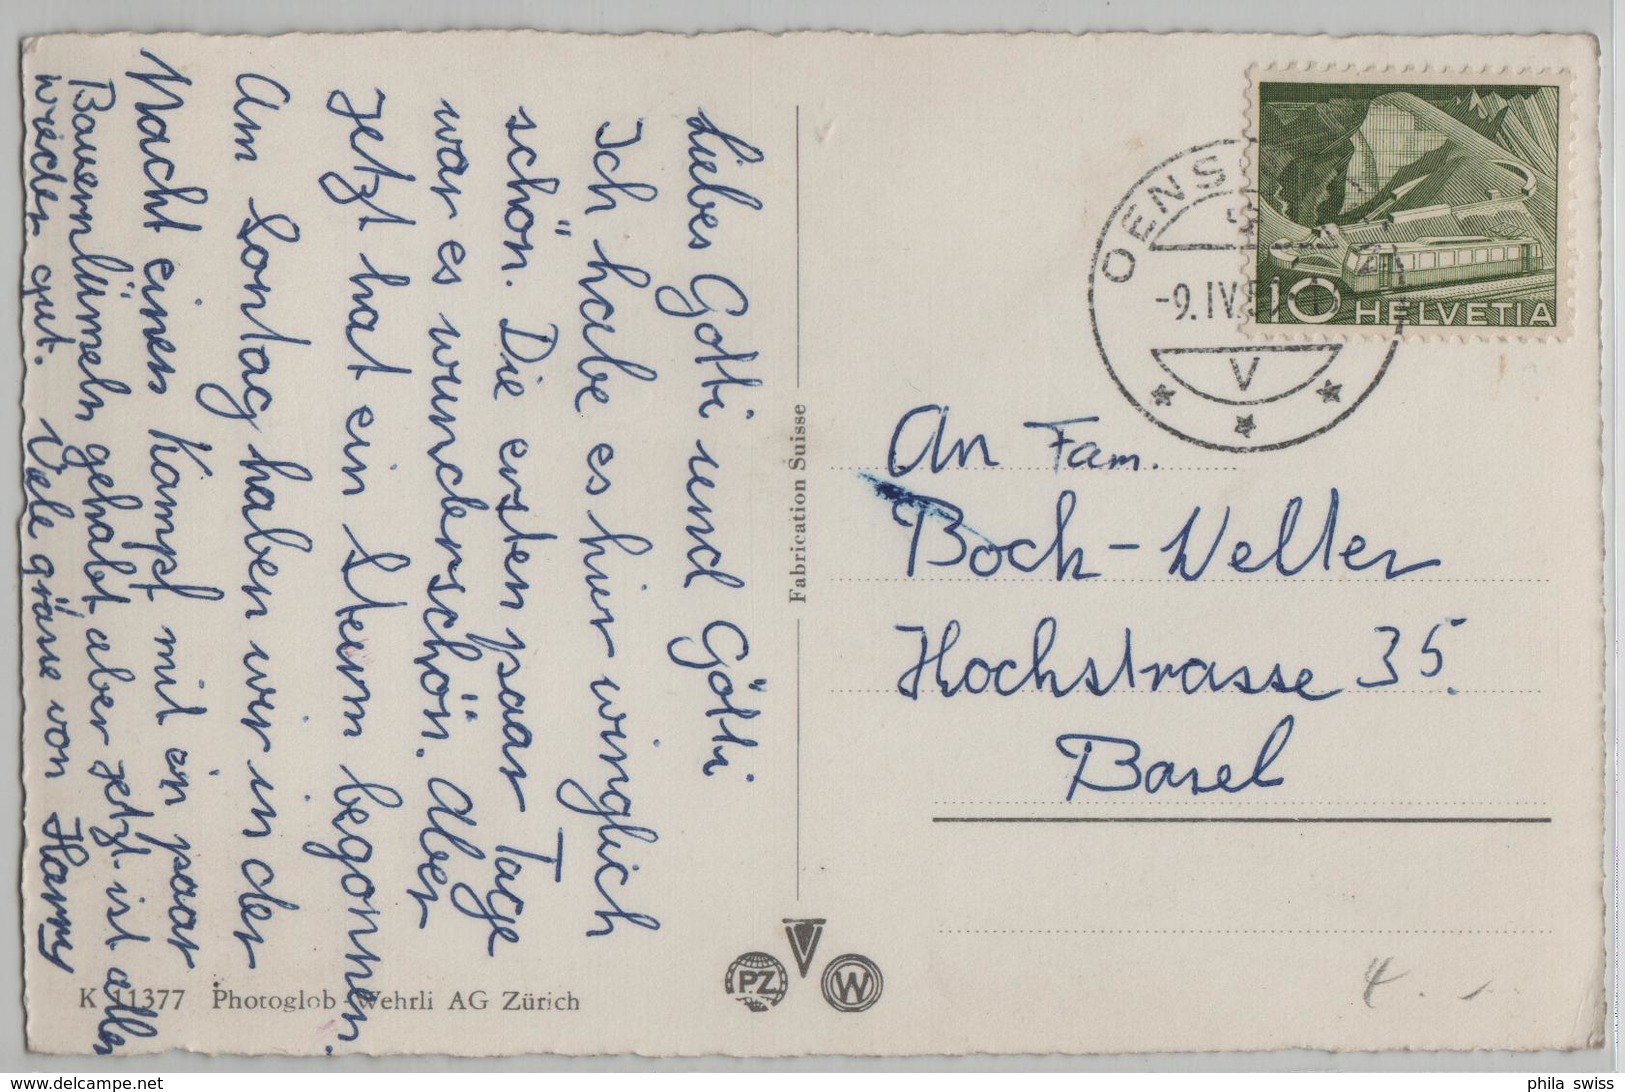 Liebes Gotti und Götti
Ich habe es hir wirglich
schön. Die ersten paar Tage
war es wunderschön. Aber
Jetzt hat ein Sturm begonnen.
Am Sontag haben wir in der
Nacht einen Kampf mit ein paar
Bauernlümeln gehabt aber jetzt ist alles
wieder gut. Vele grüsse von Harry
K 11377 Photoglob-Wehrli AG Zürich
Fabrication Suisse
PZ
V
W
OENS
-9. IV
V
10 HELVETIA
An Fam.
Boch-Weller
Hochstrasse 35.
Basel
4.-
phila swiss